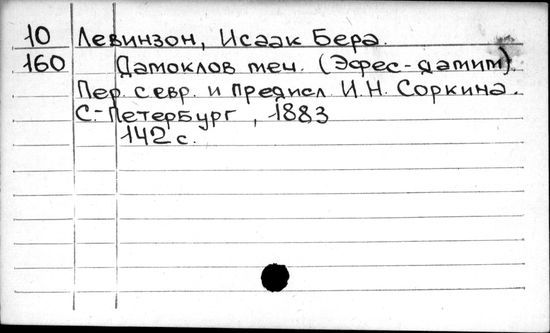 10 Левинзон, Исаак Бера.
160 Дамоклов меч. (Эфес-дамим).
Пер. с евр. и предисл. И.Н. Соркина.
С.-Петербург, 1883
142 с.